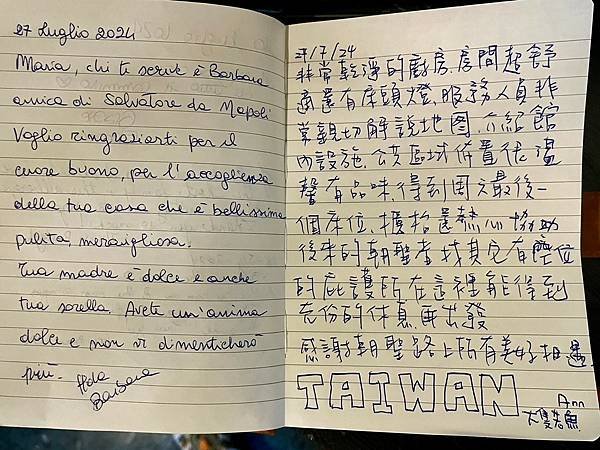 27 Luglio 2024
Maria, chi ti scrive è Barbara
amica di Salvatore da Napoli
Voglio ringraziarti per il
cuore buono, per l'accoglienza
della tua casa che è bellissima
pulita, meravigliosa.
Tua madre è dolce e anche
tua sorella. Avete un'anima
dolce e non vi dimenticherò
più.
Barbara
/7/24
非常乾淨的廚房.房間超舒
適還有床頭燈.服務人員非
常親切解說地图.介紹館
內設施.公共區域佈置很溫
馨有品味.得到最後一
個床位.櫃枱還熱心協助
後來的朝聖者找其它有空位
的庇護所在這裡能得到
充份的休息再出發
感謝朝聖路上所有美好相遇
TAIWAN Ann
大隻